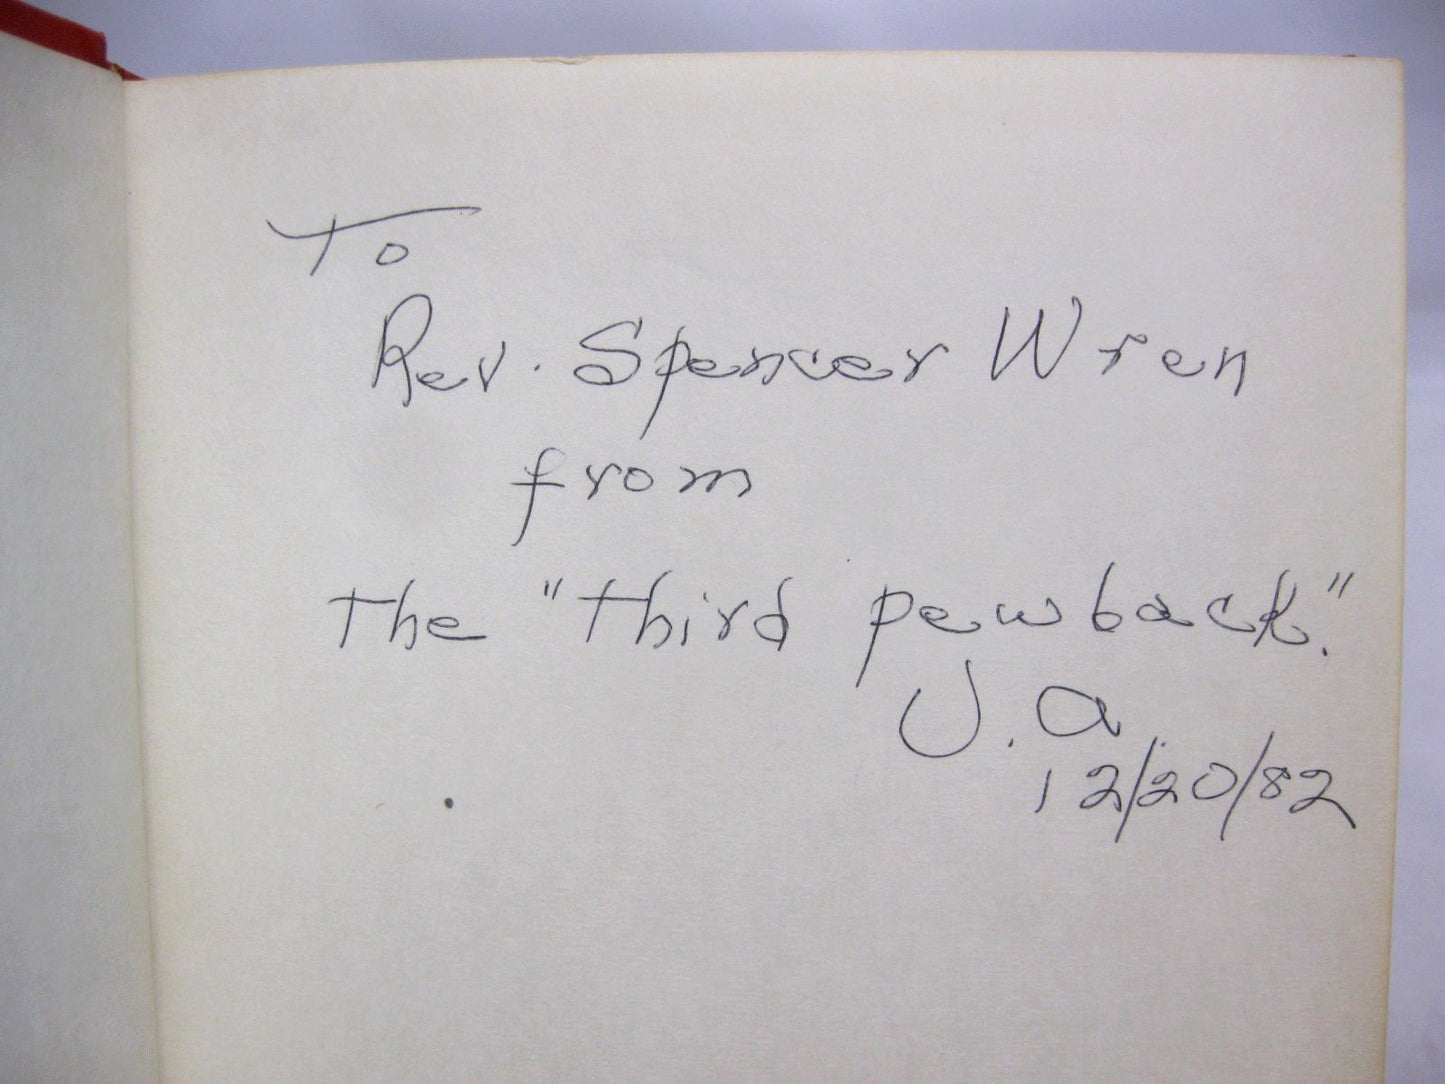 To
Rev. Spencer Wren
from
the "third pew back."
J.A.
12/20/82